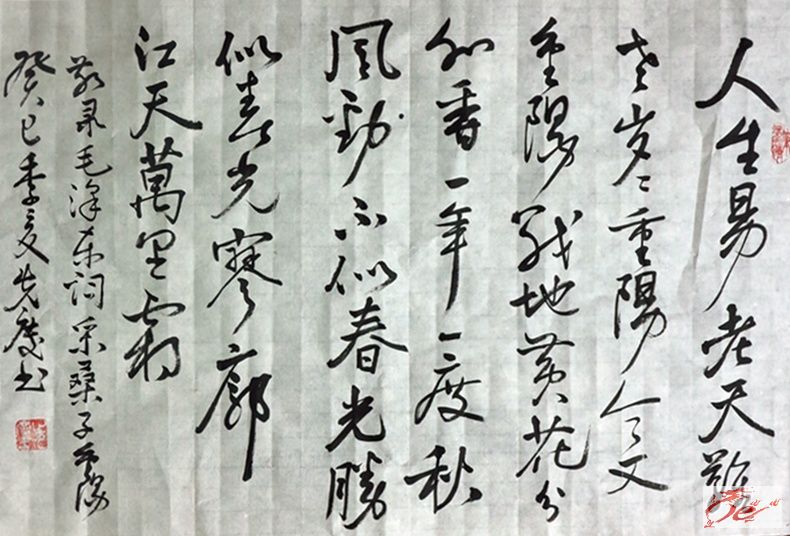 人生易老天難
老岁々重陽今又
重陽战地黄花分
外香一年一度秋
風勁不似春光勝
似春光寥廓
江天萬里霜
敬录毛泽东词采桑子重陽
癸巳季夏先书